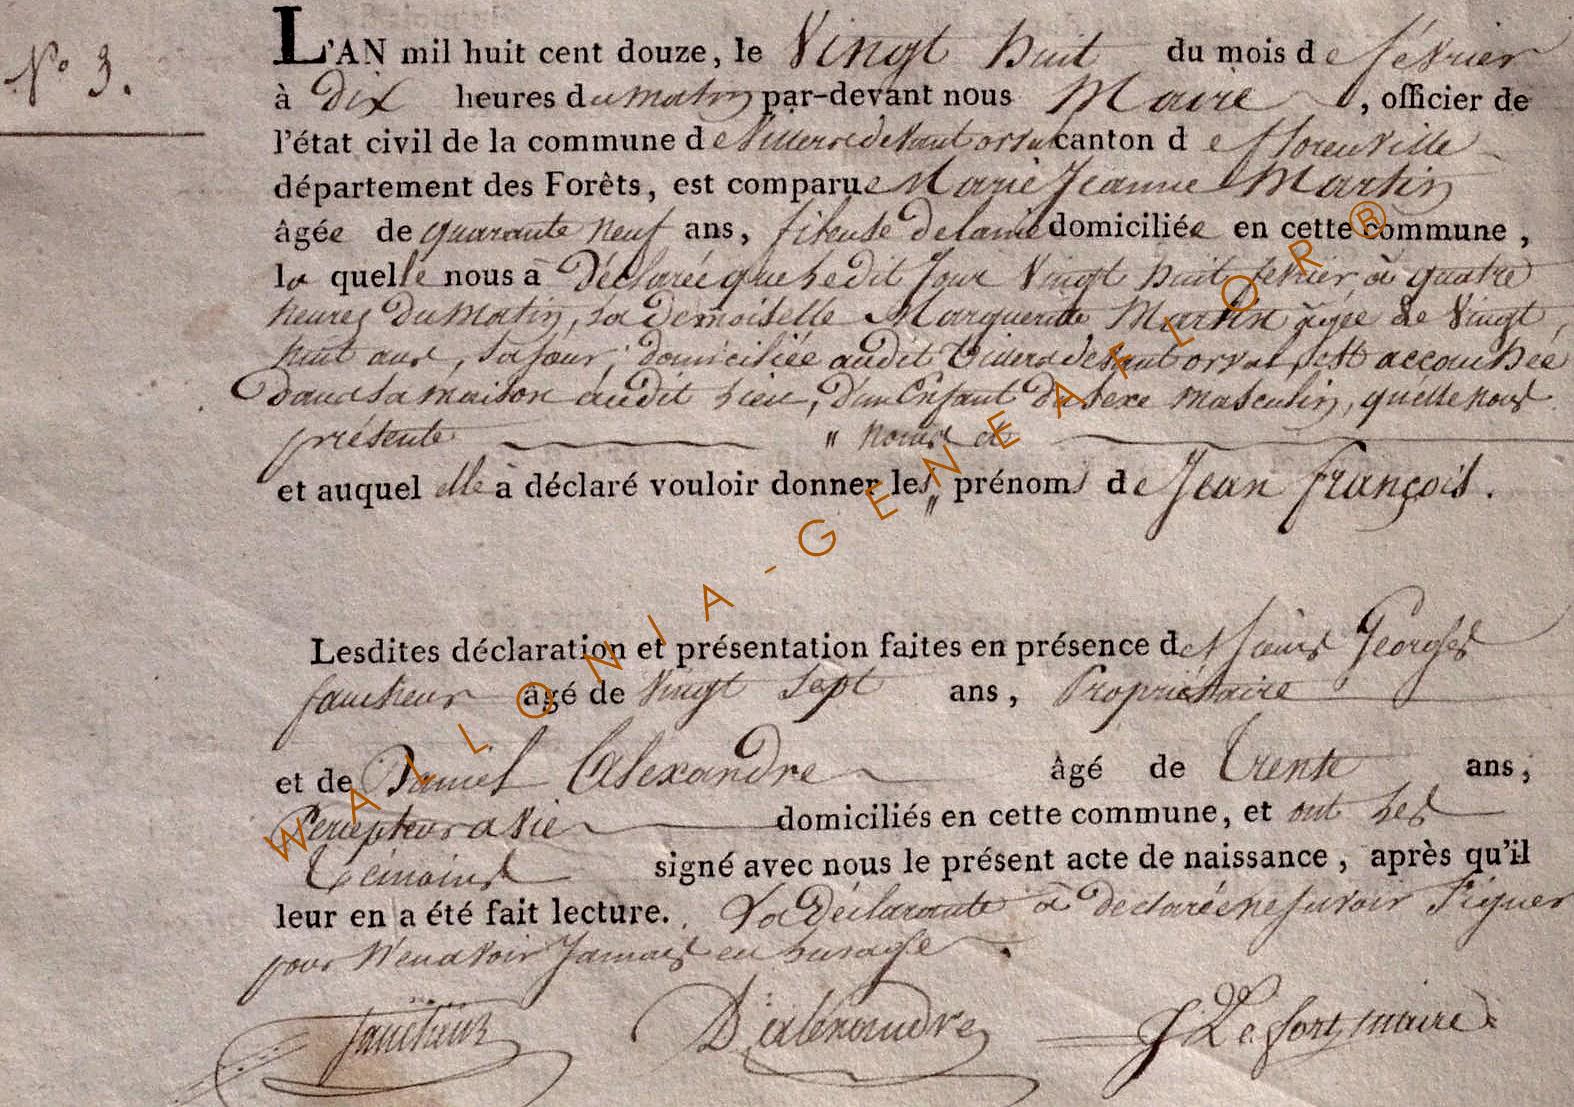 N° 3.
L'AN mil huit cent douze, le Vingt huit du mois de février
à Dix heures du matin par-devant nous Maire, officier de
l'état civil de la commune de Villersdevant orval canton de florenville
département des Forêts, est comparue Marie Jeanne Martin
âgée de quarante neuf ans, fileuse de laine domiciliée en cette commune,
la quelle nous à Déclarée que Ledit Jour Vingt huit février à quatre
heures Du Matin, la Demoiselle Marguerite Martin âgée de Vingt
huit ans, sa sœur, domiciliée audit Villers devant orval, est accouchée
Dans sa maison audit Lieu, D'un Enfant Du sexe masculin, qu'elle nous
présente " nous
et auquel elle à déclaré vouloir donner les " prénoms de Jean françois.
Lesdites déclaration et présentation faites en présence de Georges
faucheur âgé de Vingt Sept ans, Propriétaire
et de Daniel Alexandre âgé de Trente ans,
Percepteur a Vie domiciliés en cette commune, et ont Les
Témoins signé avec nous le présent acte de naissance, après qu'il
leur en a été fait lecture. La Déclarante à declarée ne savoir Signer
pour N'en avoir Jamais eu L'usage.
faucheur D'alexandre J Lefort maire
WALLONIA-GENEAFLOR®